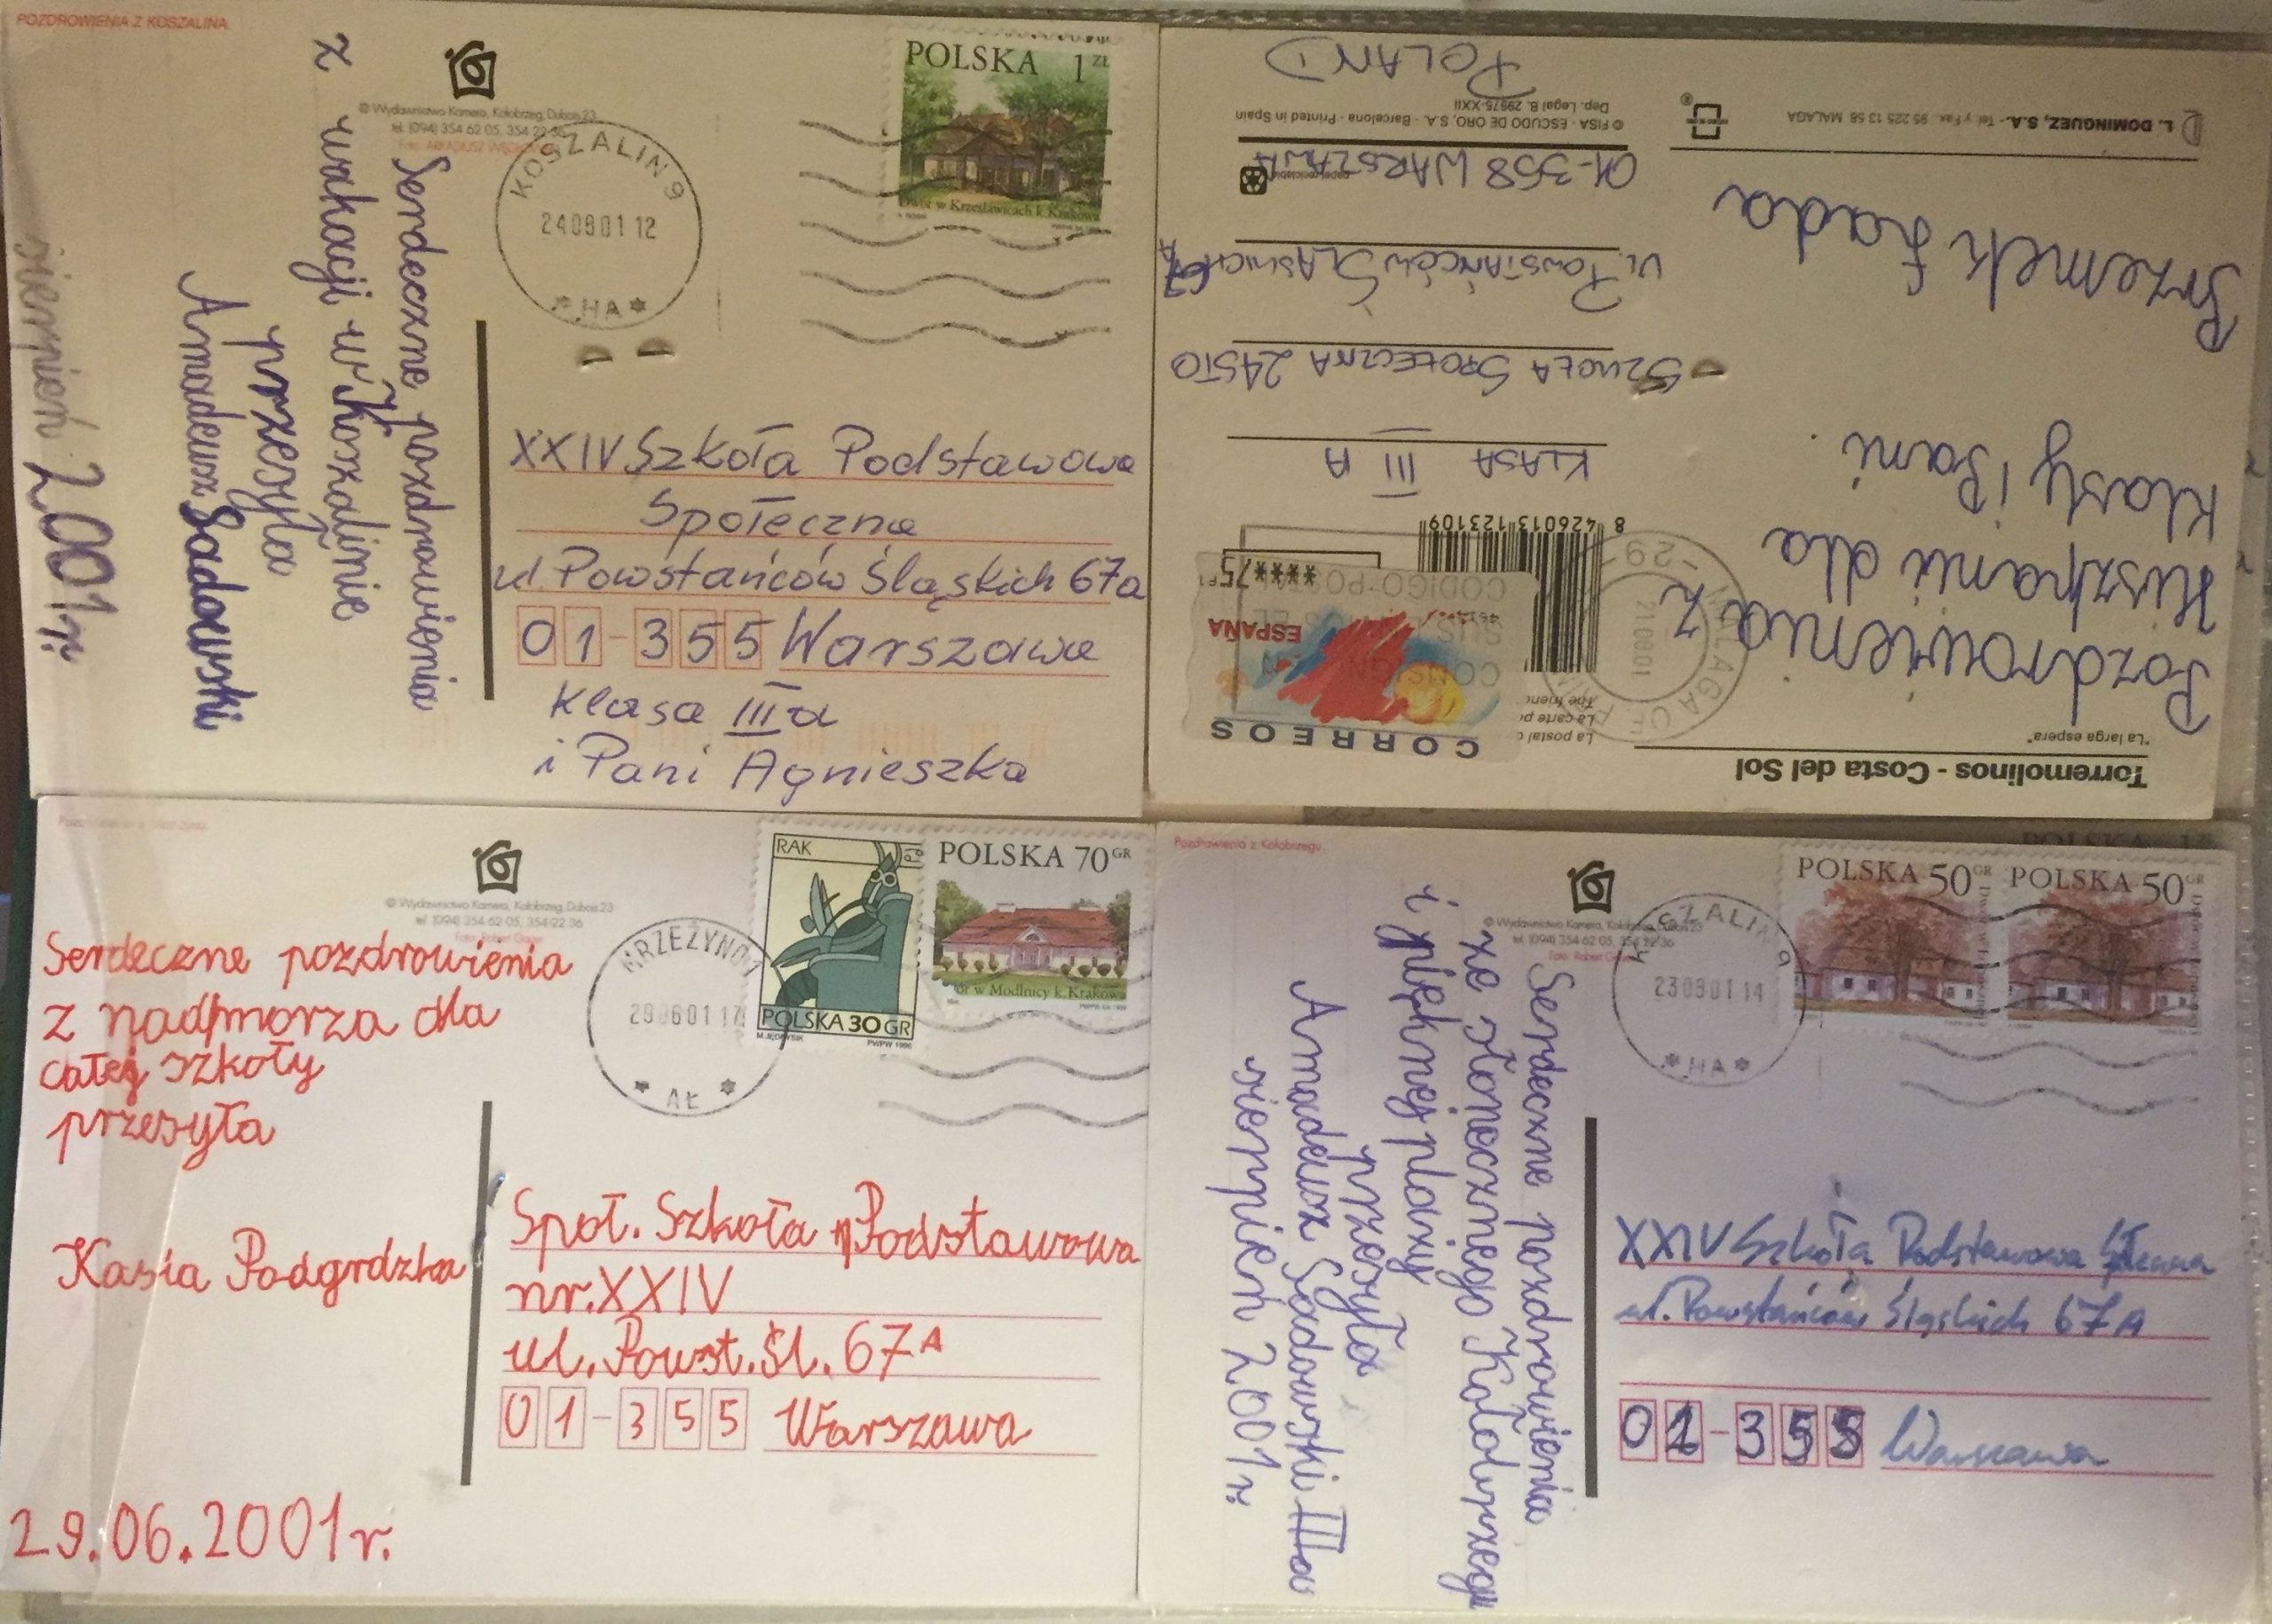 POZDROWIENIA Z KOSZALINA
© Wydawnictwo Kamera, Kołobrzeg, Dubois 23
tel. (094) 354 62 05, 354 22 36
POLSKA 1 ZŁ
Dwór w Krzesławicach k. Krakowa
KOSZALIN 9
24 08 01 12
* HA *
Serdeczne pozdrowienia
z wakacji w Koszalinie
przesyła
Amadeusz Sadowski
sierpień 2001r.
XXIV Szkoła Podstawowa
Społeczna
ul. Powstańców Śląskich 67a
01-355 Warszawa
Klasa III a
i Pani Agnieszka
Torremolinos - Costa del Sol
"La larga espera"
Pozdrowienia z
Hiszpanii dla
Klasy i Pani.
Przemek Łada
L. DOMINGUEZ, S.A. - Tel. y Fax. 95 225 13 58 MALAGA
CORREOS
ESPAÑA
****75
21 08 01
- 29 -
8 426013 123109
KLASA III A
SZKOŁA SPOŁECZNA 24STO
UL. POWSTAŃCÓW ŚLĄSKICH 67A
01-358 WARSZAWA
papel reciclable
© FISA - ESCUDO DE ORO, S.A. - Barcelona - Printed in Spain
Dep. Legal B. 29975-XXII
POLAND
© Wydawnictwo Kamera, Kołobrzeg, Dubois 23
tel. (094) 354 62 05, 354 22 36
RAK
POLSKA 30 GR
PWPW 1996
POLSKA 70 GR
Dwór w Modlnicy k. Krakowa
MRZEŻYNO 1
29 06 01 17
* AŁ *
Serdeczne pozdrowienia
z nadmorza dla
całej szkoły
przesyła
Kasia Podgrdzka
29.06.2001r.
Społ. Szkoła Podstawowa
nr. XXIV
ul. Powst. Śl. 67A
01-355 Warszawa
Pozdrowienia z Kołobrzegu
© Wydawnictwo Kamera, Kołobrzeg, Dubois 23
tel. (094) 354 62 05, 354 22 36
Foto: Robert
POLSKA 50 GR
POLSKA 50 GR
KOSZALIN 9
23 08 01 14
* HA *
Serdeczne pozdrowienia
ze słonecznego Kołobrzegu
i pięknej plaży
przesyła
Amadeusz Sadowski IIIa
sierpień 2001r.
XXIV Szkoła Podstawowa
ul. Powstańców Śląskich 67A
01-355 Warszawa